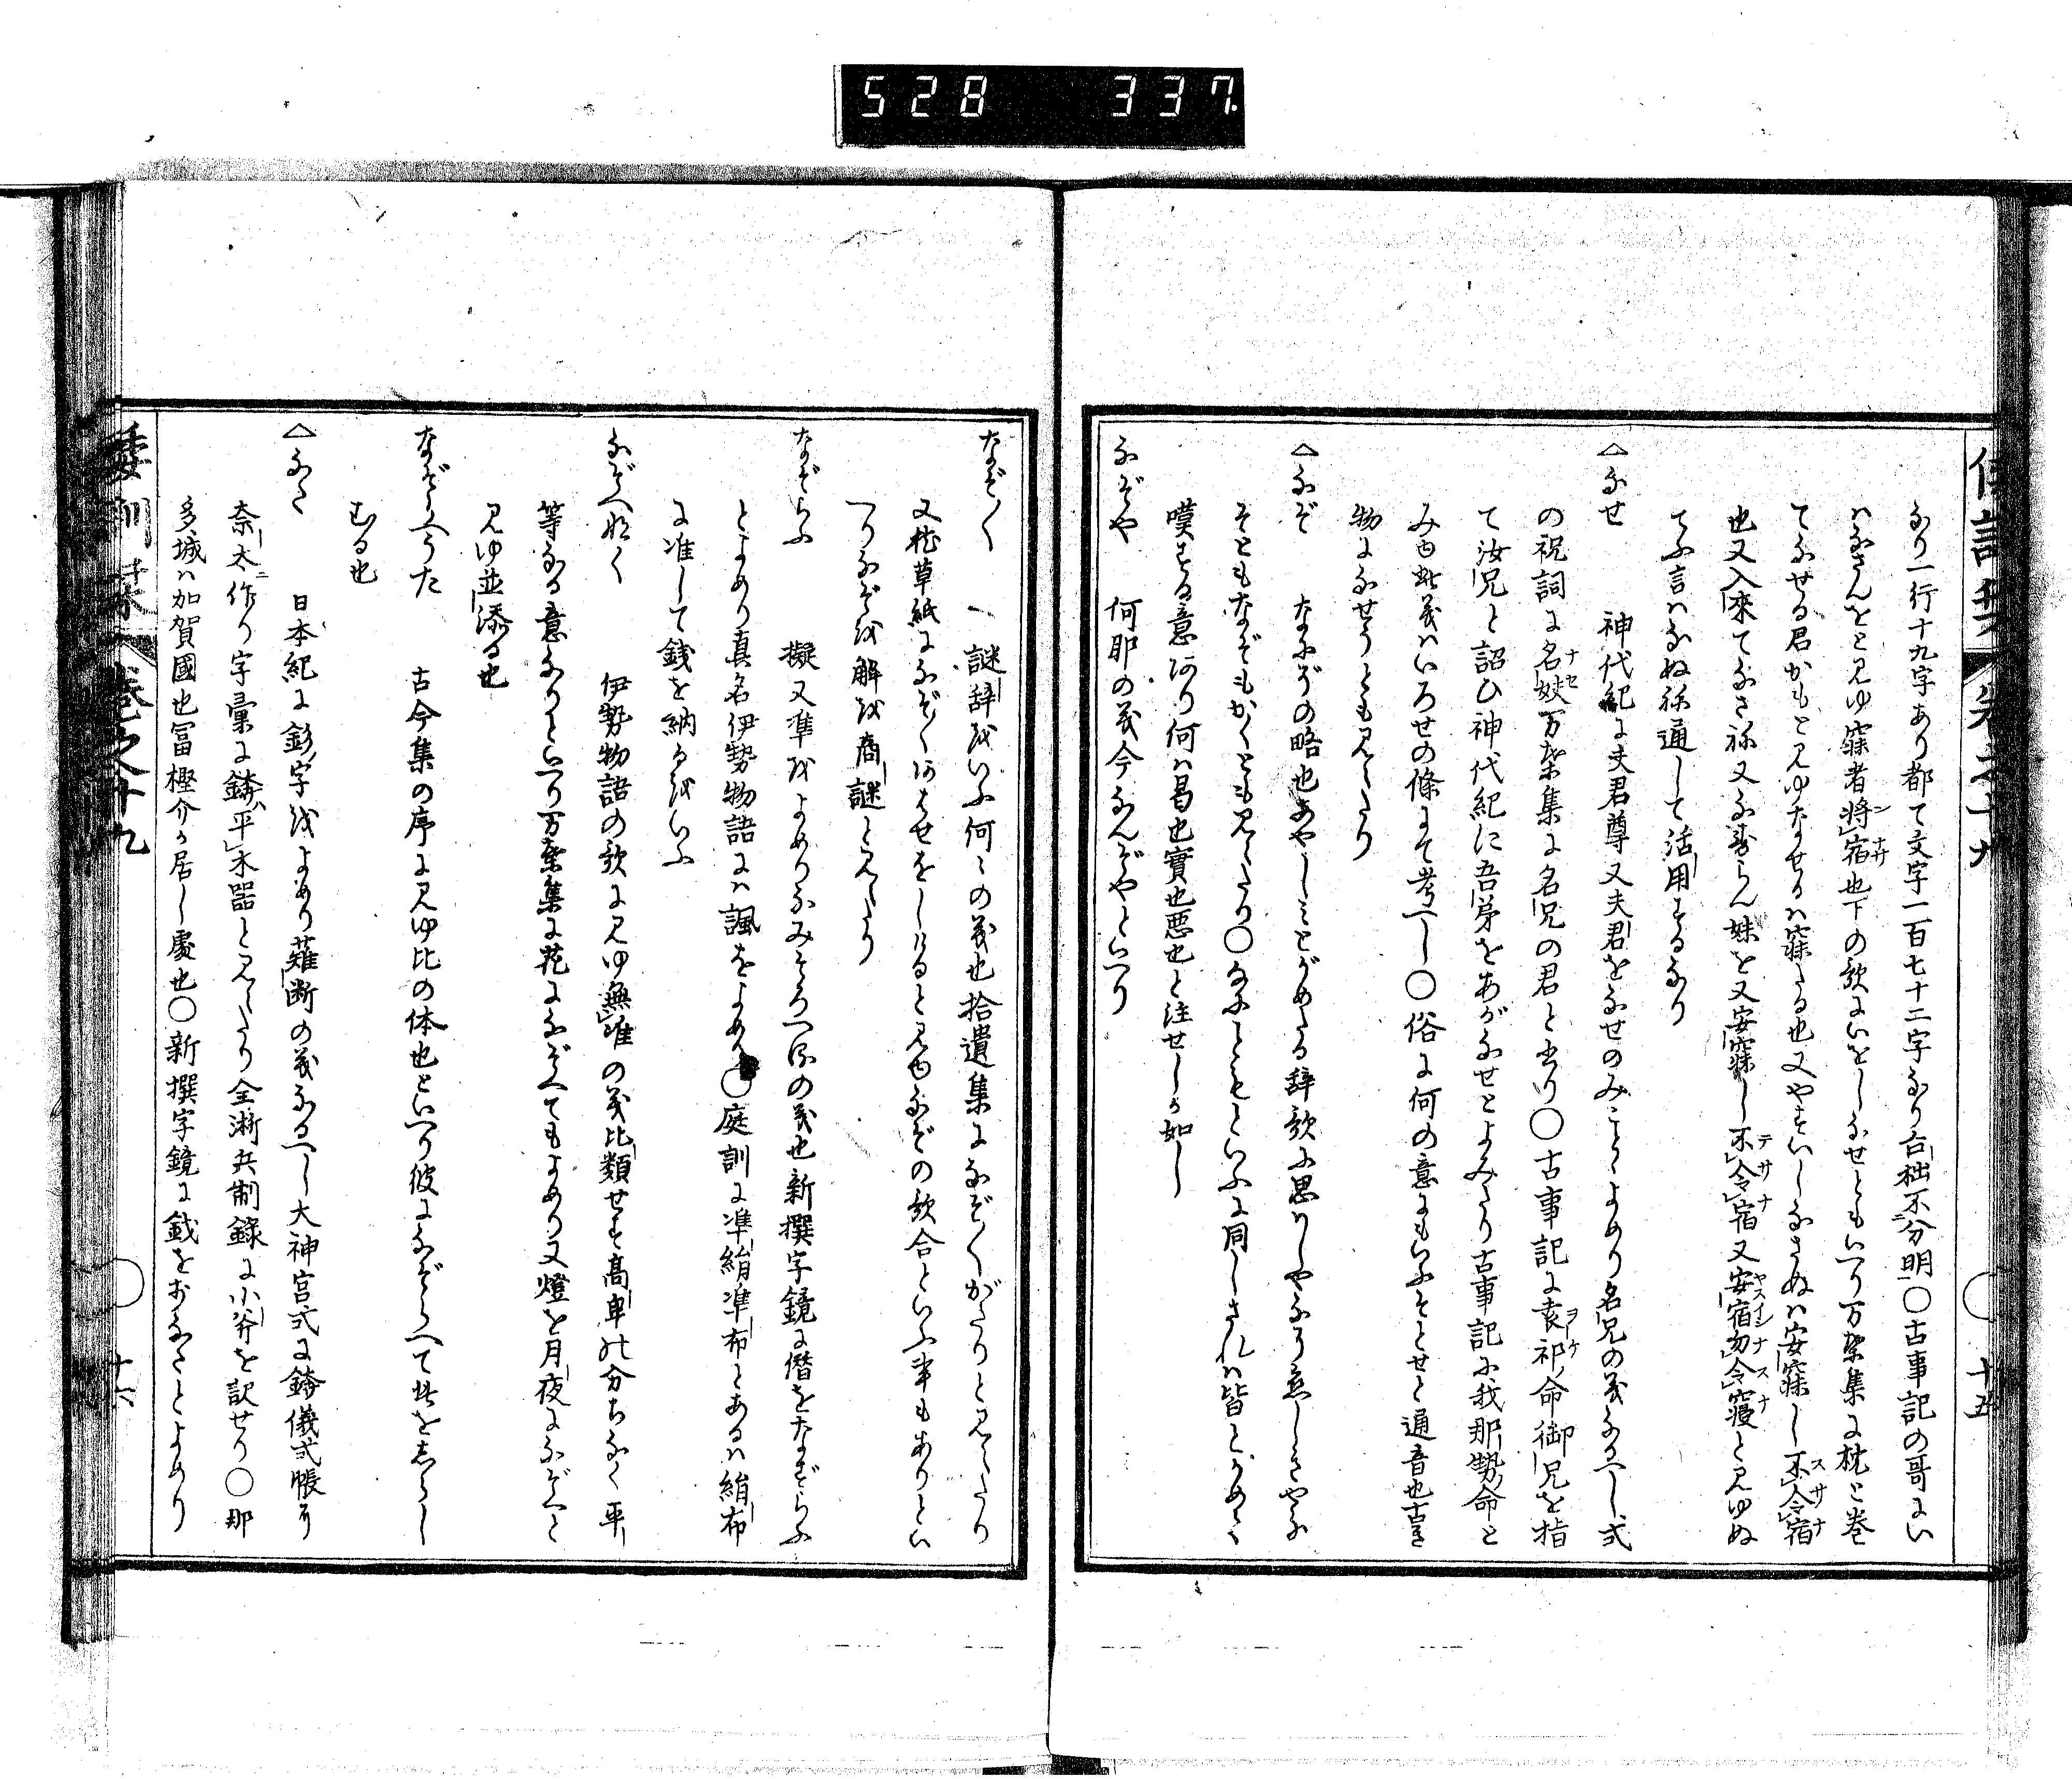 528 337
なり一行十九字あり都て文字一百七十二字なり古拙不分明〇古事記の哥にい
はなさんをと見ゆ寐者将宿也下の歌にいをしなせともいへり万葉集に枕と巻
てなせる君かもと見ゆなせるは寐たる也又やすいしなさぬは安寐し不令宿
也又入來てなさね又な寿らん妹を又安寐し不令宿又安宿勿令寝と見ゆぬ
てふ言はなぬね通して活用するなり
△なせ 神代紀に夫君尊又夫君をなせのみことよめり名兄の義なるへし式
の祝詞に名妋万葉集に名兄の君と出り〇古事記に袁祁ノ命御兄を指
て汝兄と詔ひ神代紀に吾弟をあがなせとよみたり古事記に我那勢ノ命と
み由此義はいろせの條にて考へし〇俗に何の意にもいふそとせと通音也古き
物になせうとも見えたり
△なぞ なにぞの略也あやしミとがめたる辞歌に思はしやなぞ恋しきやな
そともなぞもかくとも見えたり〇なにともといふに同しされは皆とがめて
嘆する意あり何は曷也實也悪也と注せしか如し
なぞや 何耶の義今なんぞやといへり
なぞ〱 謎辞をいふ何〻の義也拾遺集になぞ〱がたりと見えたり
又枕草紙になぞ〱あはせをしけると見ゆなぞの歌合といふ事もありとい
へりなぞを解を商謎と見えたり
なぞらふ 擬又准をよめりなみそろへるの義也新撰字鏡に僭をなぞらふ
とよめり真名伊勢物語には諷をよめり〇庭訓に准絹准布とあるは絹布
に准して銭を納るをいふ
なぞへなく 伊勢物語の歌に見ゆ無准の義比類せす高卑の分ちなく平
等なる意なりといへり万葉集に花になぞへてもよめり又燈を月夜になぞへと
見ゆ並添る也
なぞらへうた 古今集の序に見ゆ比の体也といへり彼になぞらへて此をしらし
むる也
△なた 日本紀に釤ノ字をよめり薙断の義なるへし大神宮式に鉾儀式帳に
奈太作り字彙に鎊ハ平木器と見えたり全浙兵制録に小斧を訳せり〇那
多城は加賀國也冨樫介か居し處也〇新撰字鏡に鉞をおなたとよめり
倭訓栞 巻之十九 十六
十五